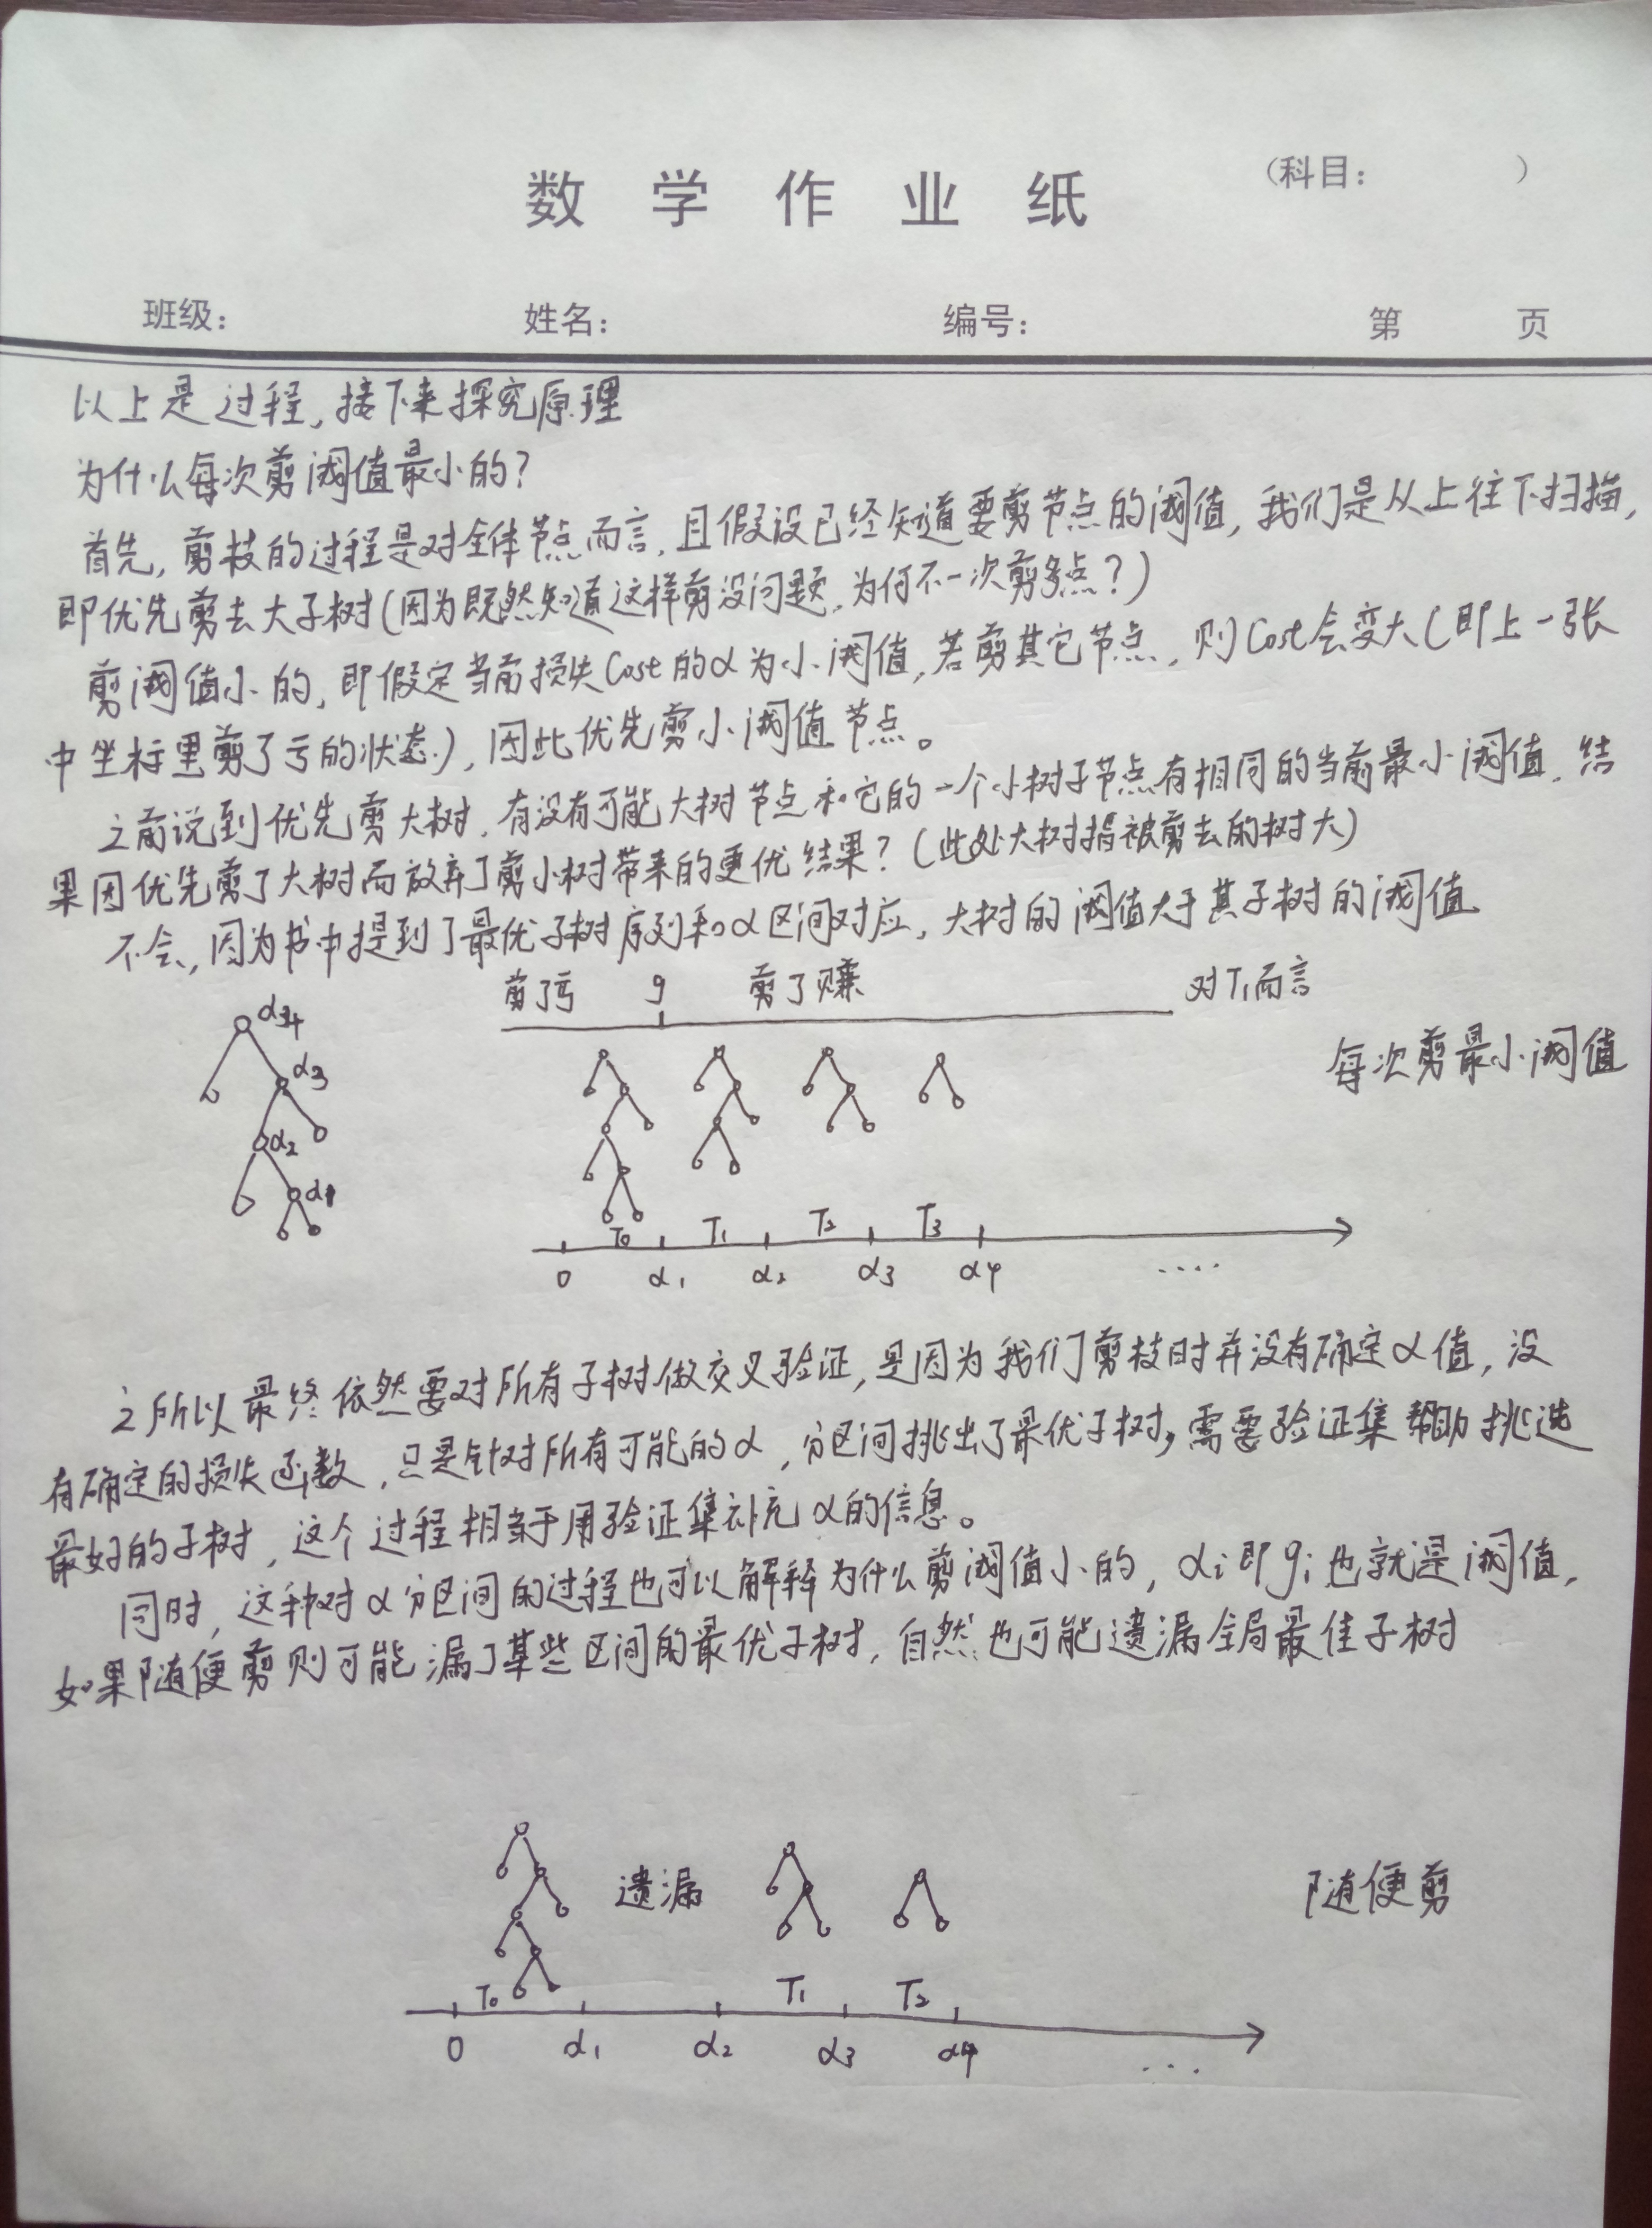 数学作业纸
（科目： ）
班级： 姓名： 编号： 第 页
以上是过程，接下来探究原理
为什么每次剪阈值最小的？
首先，剪枝的过程是对全体节点而言，且假设已经知道要剪节点的阈值，我们是从上往下扫描，
即优先剪去大子树（因为既然知道这样剪没问题，为何不一次剪多点？）
剪阈值小的，即假定当前损失Cost的α为小阈值，若剪其它节点，则Cost会变大（即上一张
中坐标里剪了亏的状态），因此优先剪小阈值节点。
之前说到优先剪大树，有没有可能大树节点和它的一个小树子节点有相同的当前最小阈值，结
果因优先剪了大树而放弃了剪小树带来的更优结果？（此处大树指被剪去的树大）
不会，因为书中提到了最优子树序列和α区间对应，大树的阈值大于其子树的阈值
剪了亏 g 剪了赚 对T₁而言
α4
α3
α2
α1
每次剪最小阈值
T₀ T₁ T₂ T₃
0 α₁ α₂ α₃ α4 ....
之所以最终依然要对所有子树做交叉验证，是因为我们剪枝时并没有确定α值，没
有确定的损失函数，只是针对所有可能的α，分区间挑出了最优子树，需要验证集帮助挑选
最好的子树，这个过程相当于用验证集补充α的信息。
同时，这种对α分区间的过程也可以解释为什么剪阈值小的，αi即gi也就是阈值，
如果随便剪则可能漏了某些区间的最优子树，自然也可能遗漏全局最佳子树
遗漏 随便剪
T₀ T₁ T₂
0 α₁ α₂ α₃ α4 ...